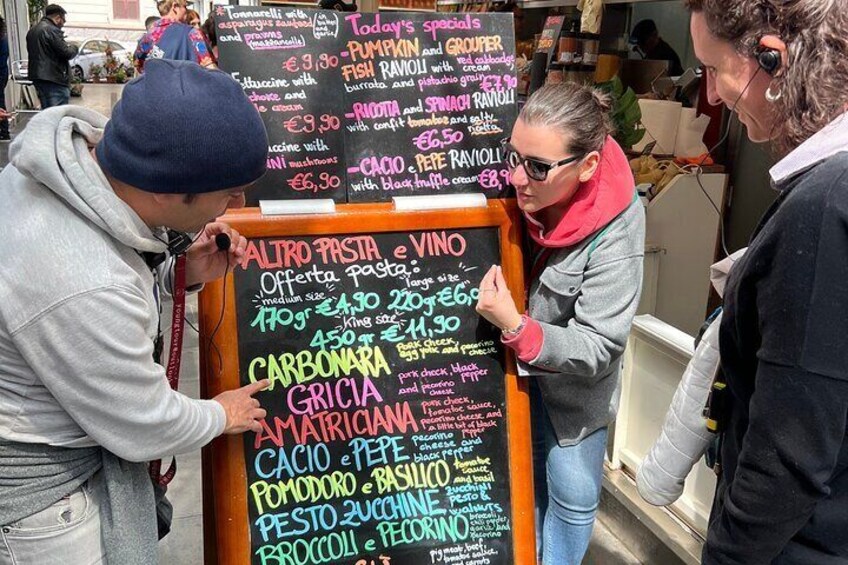 Tonnarelli with
asparagus sauteed
and prawns
(mazzancolle)
in butter
and garlic
€9,90
ettuccine with
and
cream
€9,90
uccine with
INI and
mushrooms
€6,90
Today's specials
-PUMPKIN and GROUPER
FISH RAVIOLI with red cabbage
burrata and pistachio grain
€7,90
-RICOTTA and SPINACH RAVIOLI
with confit tomatoes and salty
ricotta
€6,50
-CACIO e
PEPE RAVIOLI
with black truffle cream
€8,90
ALTRO PASTA e VINO
Offerta pasta:
medium size
large size
170gr €4,90 220gr €6,
king size
450gr €11,90
CARBONARA pork cheek,
egg yolk and pecorino
cheese
GRICIA pork cheek, black pepper
and pecorino
AMATRICIANA pork cheek,
tomato sauce,
pecorino cheese and
a little bit of black
pepper
CACIO e PEPE pecorino
cheese and
black pepper
POMODORO e BASILICO tomato
sauce
PESTO ZUCCHINE zucchini
pesto &
walnuts
BROCCOLI e PECORINO broccoli,
chili pepper
and
pecorino
pig meat, beef,
carrot, onion,
tomato sauce
youngtoursrome.c